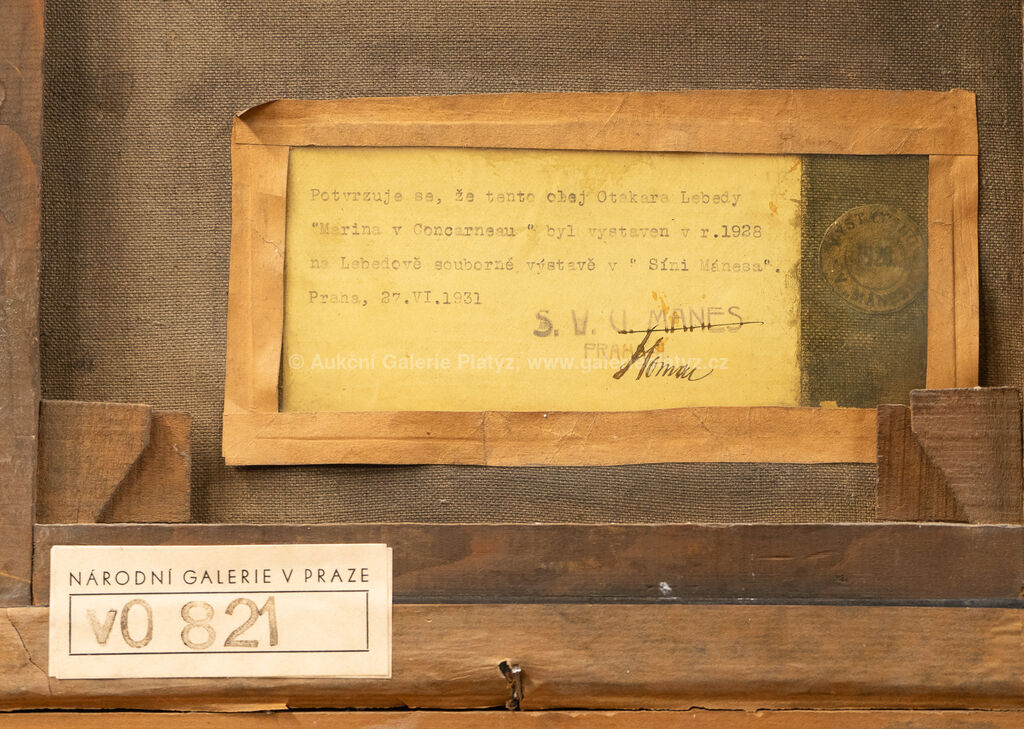 Potvrzuje se, že tento olej Otakara Lebedy
"Marina v Concarneau " byl vystaven v r.1928
na Lebedově souborné výstavě v " Síni Mánesa".
Praha, 27.VI.1931
S. V. U. MÁNES
PRAHA
© Aukční Galerie Platýz, www.galerieplatyz.cz
NÁRODNÍ GALERIE V PRAZE
VO 821